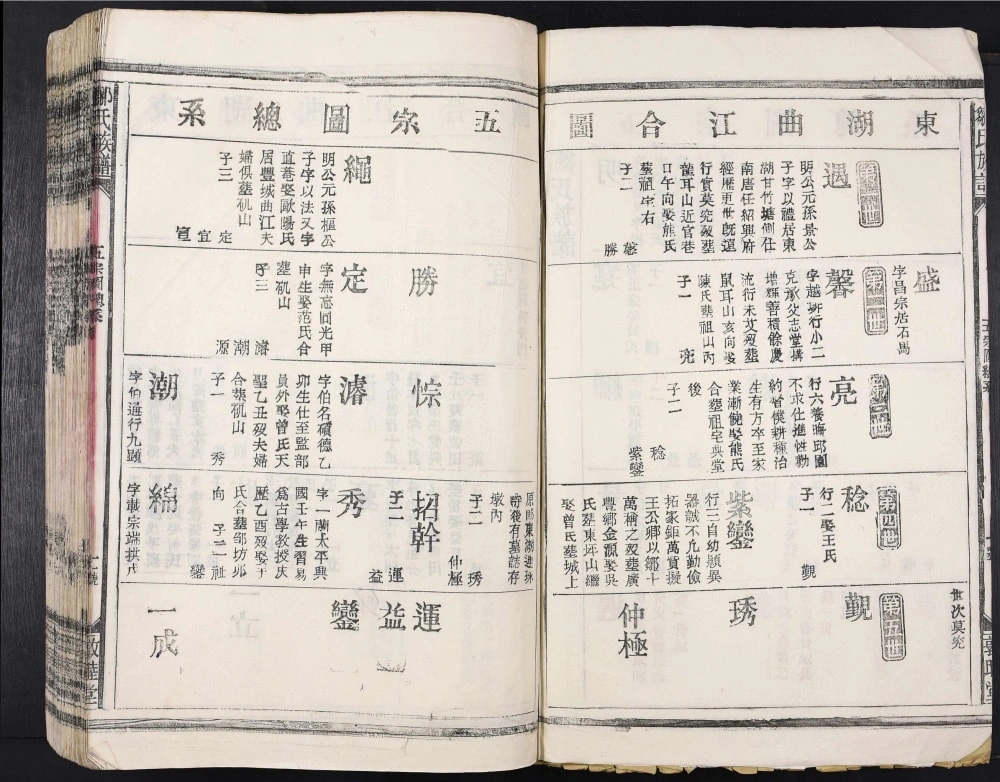 東湖曲江合圖
第一世
遇
明公元孫景公
子字以禮居東
湖甘竹塘側仕
南唐任紹興府
經歷更世既遠
行實莫究歿葬
龍耳山近官巷
口午向娶熊氏
葬祖宅右
子二
馨 勝
盛
字昌宗居石馬
第二世
馨
字越班行小二
克承父志堂搆
增輝善積餘慶
流衍未艾歿葬
鼠耳山亥向娶
陳氏葬祖山丙
子一
亮
第三世
亮
行六養晦邱園
不求仕進性勤
約耆僕耕種治
生有方卒至家
業漸饒娶熊氏
合葬祖宅興堂
後
子二
稔
紫鑾
第四世
稔
行二娶王氏
子一
觀
紫鑾
行三自幼頴異
器誠不凡勤儉
拓家鉅萬貲擬
王公鄉以鄒十
萬稱之歿葬廣
豐鄉金瓢娶吳
氏葬東坪山繼
娶曾氏葬城上
世次莫究
第五世
觀
琇
仲極
鄒氏族譜
五宗圖總系
五宗圖總系
繩
明公元孫樞公
子字以法又字
直菴娶歐陽氏
居豐城曲江夫
婦俱葬矶山
子三
定
宜
寘
勝
定
字無忘同光甲
申生娶范氏合
葬矶山
子三
濬
潮
源
悰
濬
字伯名碩德乙
卯生仕至監部
員外娶曾氏天
聖乙丑歿夫婦
合葬矶山
子一
秀
潮
字伯通行九題
原時東湖進珠
寺後有墓誌存
墩內
子二
琇
仲極
招幹
子二
運
益
秀
字一蘭太平興
國壬午生習易
爲古學教授慶
歷乙酉歿娶于
氏合葬鄒坊邜
向
子二
鑾
祉
綿
字載宗端拱戊
運
益
鑾
一成
鄒氏族譜
五宗圖總系
敦睦堂